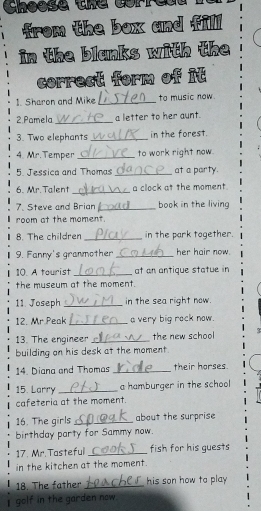 Choose the correct verb
from the box and fill
in the blanks with the
correct form of it
1. Sharon and Mike listen to music now.
2.Pamela write a letter to her aunt.
3. Two elephants walk in the forest.
4. Mr.Temper drive to work right now.
5. Jessica and Thomas dance at a party.
6. Mr.Talent draw a clock at the moment.
7. Steve and Brian read book in the living
room at the moment.
8. The children play in the park together.
9. Fanny's granmother comb her hair now.
10. A tourist look at an antique statue in
the museum at the moment.
11. Joseph swim in the sea right now.
12. Mr.Peak listen a very big rock now.
13. The engineer draw the new school
building on his desk at the moment.
14. Diana and Thomas ride their horses.
15. Larry ets a hamburger in the school
cafeteria at the moment.
16. The girls speak about the surprise
birthday party for Sammy now.
17. Mr.Tasteful cooks fish for his guests
in the kitchen at the moment.
18. The father teaches his son how to play
golf in the garden now